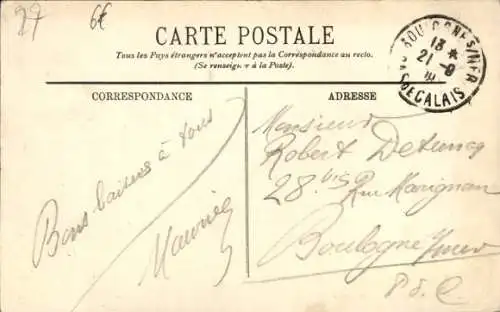 27
6€
CARTE POSTALE
Tous les Pays étrangers n'acceptent pas la Correspondance au recto.
(Se renseigner à la Poste).
BOULOGNE S/MER
13 *
21 - 8
PAS DE CALAIS
CORRESPONDANCE
Bons baisers à tous
Maurice
ADRESSE
Monsieur
Robert
28 bis Rue Marignan
Boulogne s/mer
P. d. C.